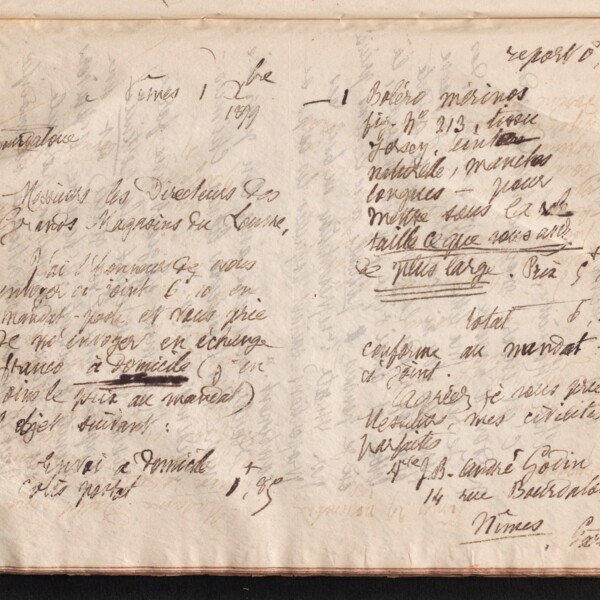 Nîmes 1 Xbre
1899
Messieurs les Directeurs des
Grands Magasins du Louvre,
J'ai l'honneur de vous
envoyer ci-joint 6, 10 en
mandat-poste et vous prie
de m'envoyer en échange
franco à domicile (j'en
joins le prix au mandat)
l'objet suivant :
Envoi à domicile
colis postal 1f,85
report
— 1 Boléro mérinos
fig. No 213, tissu
Jersey, teinte
naturelle, manches
longues — pour
mettre sous la
taille ce que vous avez
de plus large. Prix 5f
total 6,
conforme au mandat
ci joint.
Agréez je vous prie
Messieurs, mes civilités
parfaites
J.B. André Godin
14 rue Bourdaloue
Nîmes